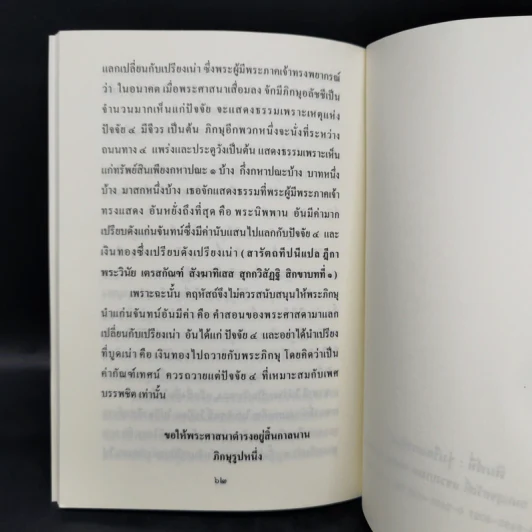 แลกเปลี่ยนกับเปรียงเน่า ซึ่งพระผู้มีพระภาคเจ้าทรงพยากรณ์
ว่า ในอนาคต เมื่อพระศาสนาเสื่อมลง จักมีภิกษุอลัชชีเป็น
จำนวนมากเห็นแก่ปัจจัย จะแสดงธรรมเพราะเหตุแห่ง
ปัจจัย ๔ มีจีวร เป็นต้น ภิกษุอีกพวกหนึ่งจะนั่งที่ระหว่าง
ถนนทาง ๔ แพร่งและประตูวังเป็นต้น แสดงธรรมเพราะเห็น
แก่ทรัพย์สินเพียงกหาปณะ ๑ บ้าง กึ่งกหาปณะบ้าง บาทหนึ่ง
บ้าง มาสกหนึ่งบ้าง เธอจักแสดงธรรมที่พระผู้มีพระภาคเจ้า
ทรงแสดง อันหยั่งถึงที่สุด คือ พระนิพพาน อันมีค่ามาก
เปรียบดังแก่นจันทน์ซึ่งมีค่านับแสนไปแลกกับปัจจัย ๔ และ
เงินทองซึ่งเปรียบดังเปรียงเน่า (สารัตถทีปนีแปล ฎีกา
พระวินัย เตรสกัณฑ์ สังฆาทิเสส สุกกวิสัฏฐิ สิกขาบทที่ ๑)
เพราะฉะนั้น คฤหัสถ์จึงไม่ควรสนับสนุนให้พระภิกษุ
นำแก่นจันทน์อันมีค่า คือ คำสอนของพระศาสดามาแลก
เปลี่ยนกับเปรียงเน่า อันได้แก่ ปัจจัย ๔ และอย่าได้นำเปรียง
ที่บูดเน่า คือ เงินทองไปถวายกับพระภิกษุ โดยคิดว่าเป็น
ค่ากัณฑ์เทศน์ ควรถวายแต่ปัจจัย ๔ ที่เหมาะสมกับเพศ
บรรพชิต เท่านั้น
ขอให้พระศาสนาดำรงอยู่สิ้นกาลนาน
ภิกษุรูปหนึ่ง
๖๒